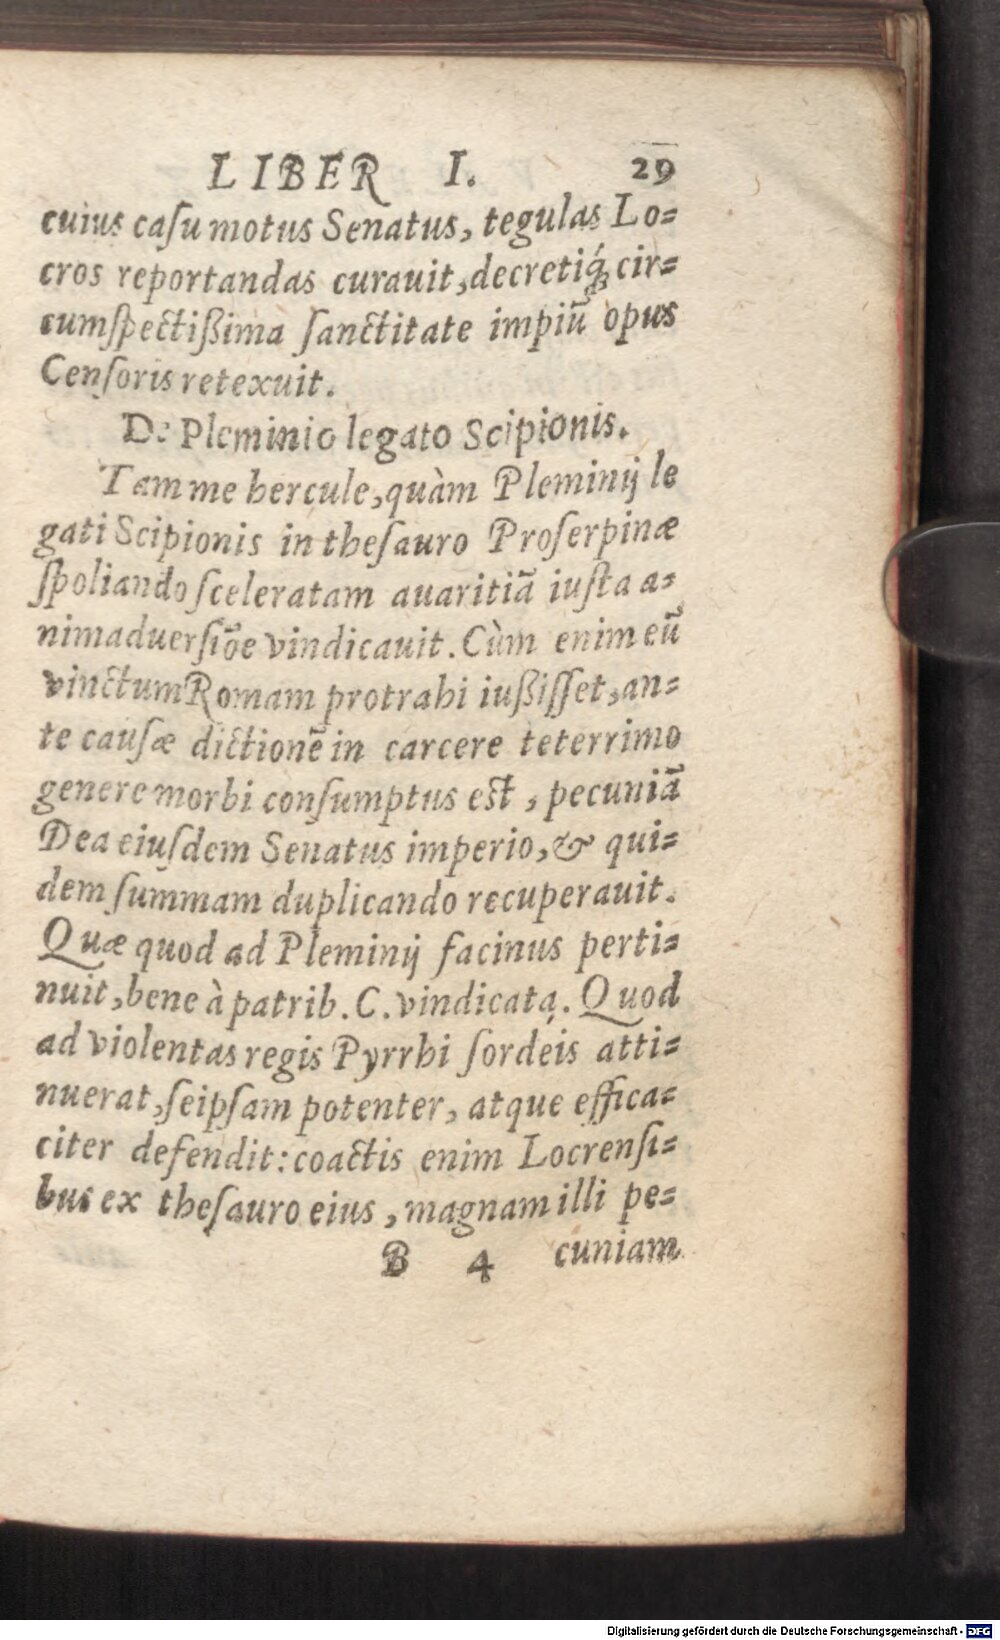 LIBER I. 29
cuius casu motus Senatus, tegulas Lo=
cros reportandas curauit, decretiq́; cir=
cumspectißima sanctitate impiũ opus
Censoris retexuit.
De Pleminio legato Scipionis.
Tam me hercule, quàm Pleminij le
gati Scipionis in thesauro Proserpinæ
spoliando sceleratam auaritiã iusta a=
nimaduersiõe vindicauit. Cùm enim eũ
vinctum Romam protrahi iußisset, an=
te causæ dictionẽ in carcere teterrimo
genere morbi consumptus est, pecuniã
Dea eiusdem Senatus imperio, & qui=
dem summam duplicando recuperauit.
Quæ quod ad Pleminij facinus perti=
nuit, bene à patrib. C. vindicata. Quod
ad violentas regis Pyrrhi sordeis atti=
nuerat, seipsam potenter, atque effica=
citer defendit: coactis enim Locrensi=
bus ex thesauro eius, magnam illi pe=
B 4 cuniam
Digitalisierung gefördert durch die Deutsche Forschungsgemeinschaft - DFG